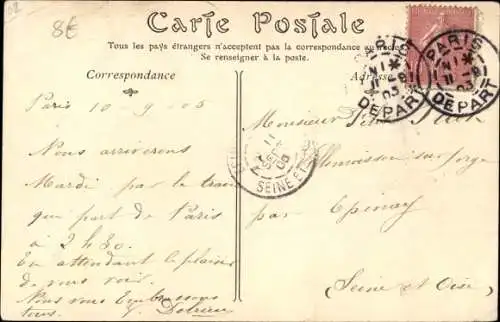 8€
Carte Postale
Tous les pays étrangers n'acceptent pas la correspondance au
Se renseigner à la poste.
Correspondance
Adresse
PARIS
DEPART
PARIS
DEPART
SEINE ET
Paris 10-9-05
Nous arriverons
Mardi par le train
qui part de Paris
à 2 h 30.
En attendant le plaisir
de vous voir.
Nous vous Embrassons
tous.
Monsieur
sur Orge
par Epinay
Seine et Oise